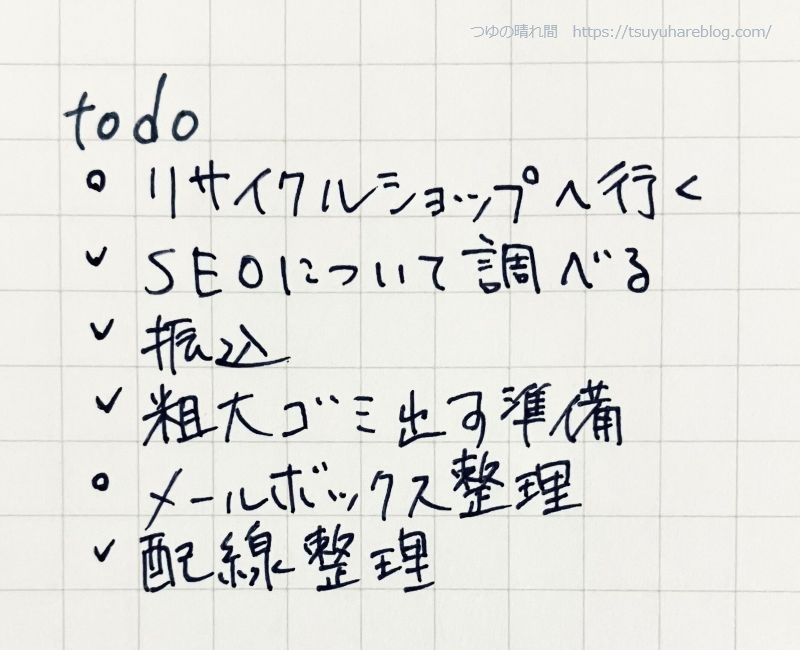 つゆの晴れ間 https://tsuyuhareblog.com/
todo
○ リサイクルショップへ行く
✓ SEOについて調べる
✓ 振込
✓ 粗大ゴミ出す準備
○ メールボックス整理
✓ 配線整理